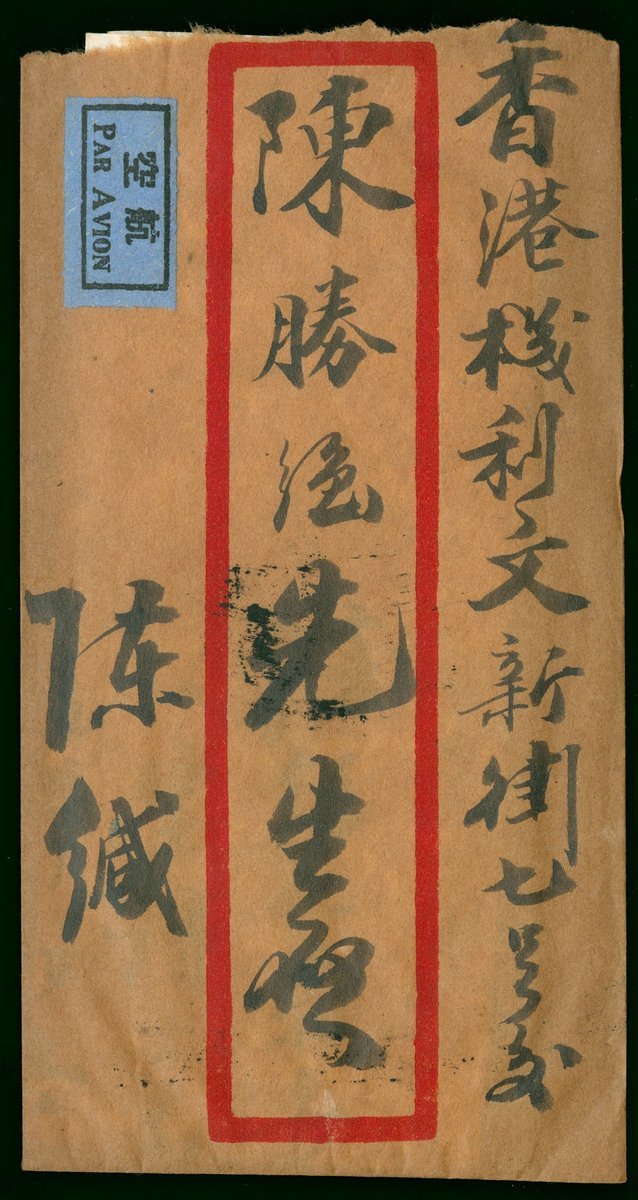 香港機利文新街七号交
陳勝先生
陈緘
航空
PAR AVION